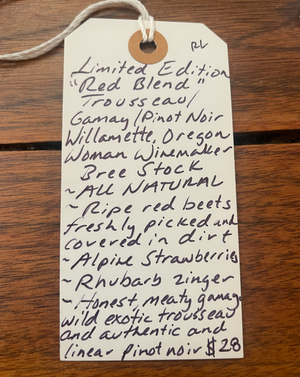 RL
Limited Edition
"Red Blend"
Trousseau/
Gamay/Pinot Noir
Willamette, Oregon
Woman Winemaker
Bree Stock
~ALL NATURAL
~Ripe red beets
freshly picked and
covered in dirt
~Alpine Strawberries
~Rhubarb zinger
~Honest meaty gamay
wild exotic trousseau
and authentic and
linear pinot noir $28